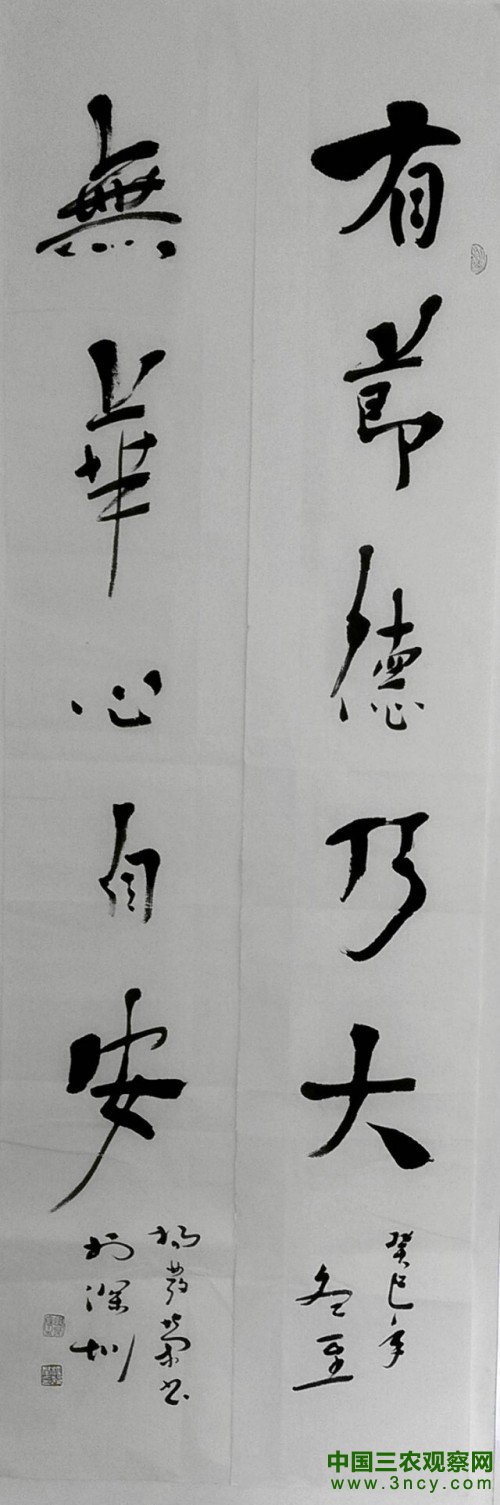 有節德乃大
癸巳年
冬至
無華心自安
楊發榮书
於深圳
中国三农观察网
www.3ncy.com